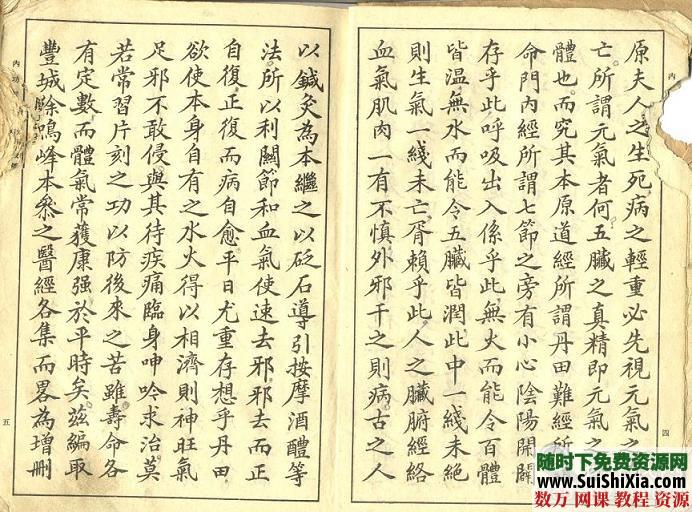 原夫人之生死病之輕重必先視元氣之
亡所謂元氣者何五臟之真精即元氣之
體也而究其本原道經所謂丹田難經所
命門內經所謂七節之旁有小心陰陽開闢
存乎此呼吸出入係乎此無火而能令百體
皆温無水而能令五臟皆潤此中一綫未絕
則生氣一綫未亡胥賴乎此人之臟腑經絡
血氣肌肉一有不慎外邪干之則病古之人
四
以鍼灸為本繼之以砭石導引按摩酒醴等
法所以利關節和血氣使速去邪邪去而正
自復正復而病自愈平日尤重存想乎丹田
欲使本身自有之水火得以相濟則神旺氣
足邪不敢侵與其待疾痛臨身呻吟求治莫
若常習片刻之功以防後來之苦雖壽命各
有定數而體氣常獲康强於平時矣茲編取
豐城徐鳴峰本參之醫經各集而畧為增刪
內功
五
随时下免费资源网
www.SuiShiXia.com
数万 网课 教程 资源